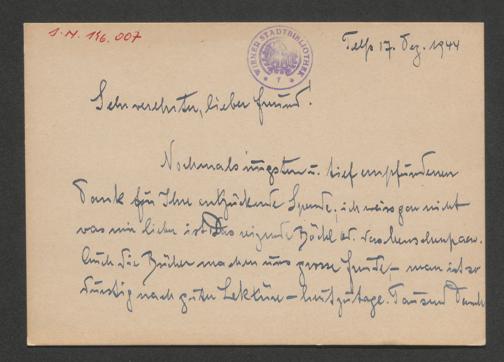 J.N. 196.007
WIENER STADTBIBLIOTHEK
Telfs 17. Dez. 1944
Sehr verehrter, lieber Freund!
Nochmals innigsten u. tief empfundenen
Dank für Ihre entzückende Spende; ich weiss gar nicht
was mir lieber ist. Das reizende od. das Menschenpaar.
Auch die Bücher machen uns grosse Freude – man ist so
durstig nach guter Lektüre – heutzutage. Tausend Dank